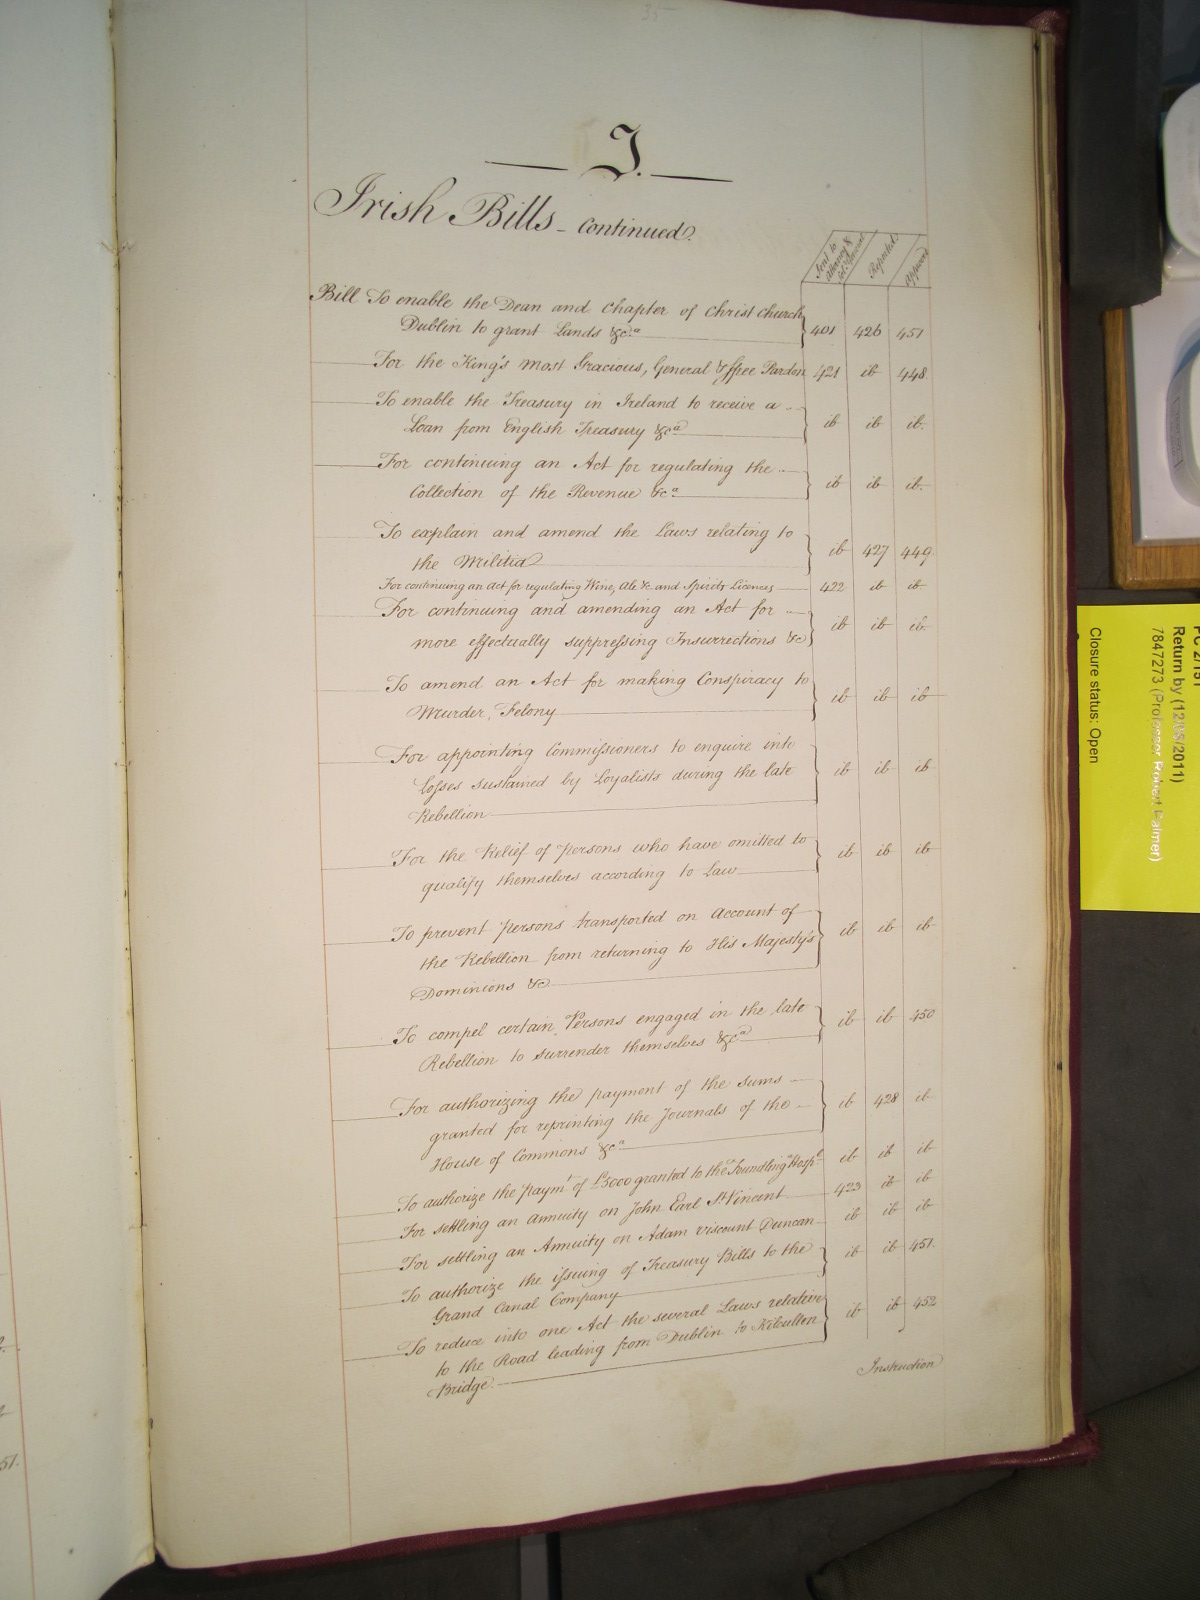 35
I.
Irish Bills - continued.
Sent to Attorney & Sol. General
Reported
approved
Bill To enable the Dean and Chapter of Christ Church
Dublin to grant Lands &ca 401 426 451
For the King's most Gracious, General & free Pardon 421 ib 448
To enable the Treasury in Ireland to receive a
Loan from English Treasury &ca ib ib ib.
For continuing an Act for regulating the
Collection of the Revenue &ca ib ib ib.
To explain and amend the Laws relating to
the Militia ib 427 449
For continuing an Act for regulating Wine, Ale &c and Spirits Licences 422 ib ib
For continuing and amending an Act for
more effectually suppressing Insurrections &c ib ib ib.
To amend an Act for making Conspiracy to
Murder, Felony ib ib ib
For appointing Commissioners to enquire into
losses sustained by Loyalists during the late
Rebellion ib ib ib
For the Relief of Persons who have omitted to
qualify themselves according to Law ib ib ib
To prevent Persons transported on Account of
the Rebellion from returning to His Majesty's
Dominions &c ib ib ib
To compel certain Persons engaged in the late
Rebellion to surrender themselves &ca ib ib 450
For authorizing the payment of the sums
granted for reprinting the Journals of the
House of Commons &ca ib 428 ib
To authorize the Paymt of £5000 granted to the Foundling Hospl ib ib ib
For settling an Annuity on John Earl St Vincent 423 ib ib
For settling an Annuity on Adam Viscount Duncan ib ib ib
To authorize the issuing of Treasury Bills to the
Grand Canal Company ib ib 451.
To reduce into one Act the several Laws relative
to the Road leading from Dublin to Kilcullen
Bridge. ib ib 452
Instruction
51.
PC 2/151
Return by (12/05/2011)
7847273 (Professor Robert Palmer)
Closure status: Open